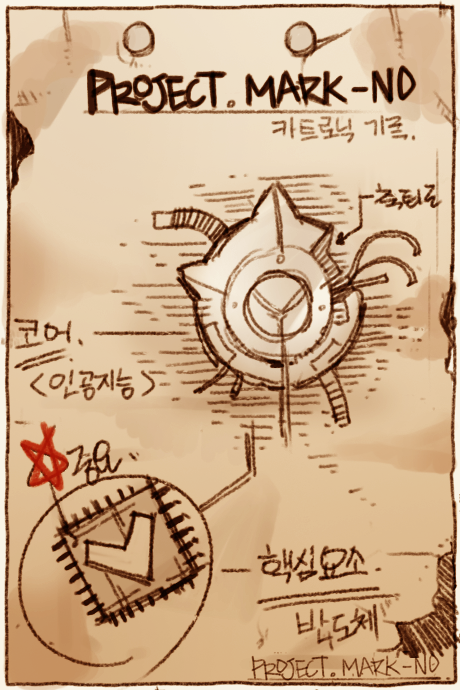 PROJECT. MARK-NO
카트로닉 기르.
코어.
<인공지능>
중요..
핵심요소.
반도체
PROJECT. MARK-NO